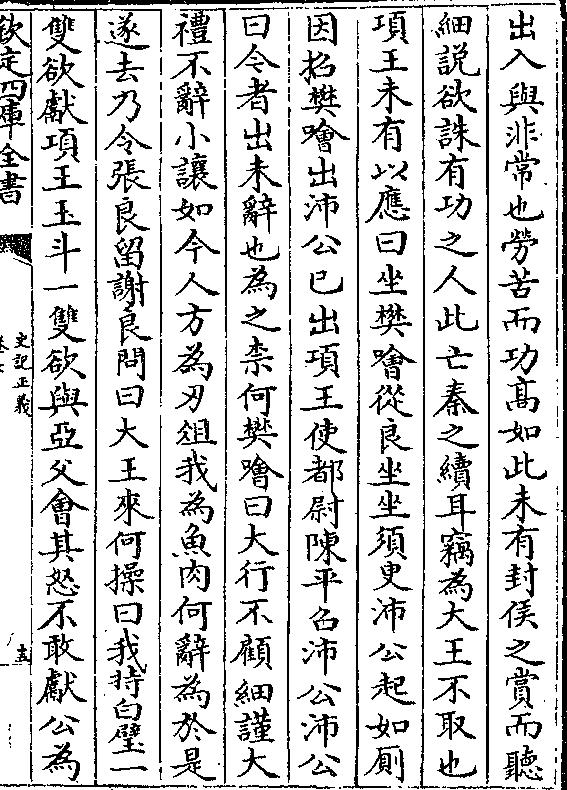 出入與非常也勞苦而功髙如此未有封侯之賞而聽
細說欲誅有功之人此亡秦之續耳竊為大王不取也
項王未有以應曰坐樊噲從良坐坐須臾沛公起如厠
因招樊噲出沛公已出項王使都尉陳平召沛公沛公
曰今者出未辭也為之柰何樊噲曰大行不顧細謹大
禮不辭小讓如今人方為刀俎我為魚肉何辭為於是
遂去乃令張良留謝良問曰大王來何操曰我持白璧一
雙欲獻項王玉斗一雙欲與亞父會其怒不敢獻公為
欽定四庫全書
史記正義
卷七